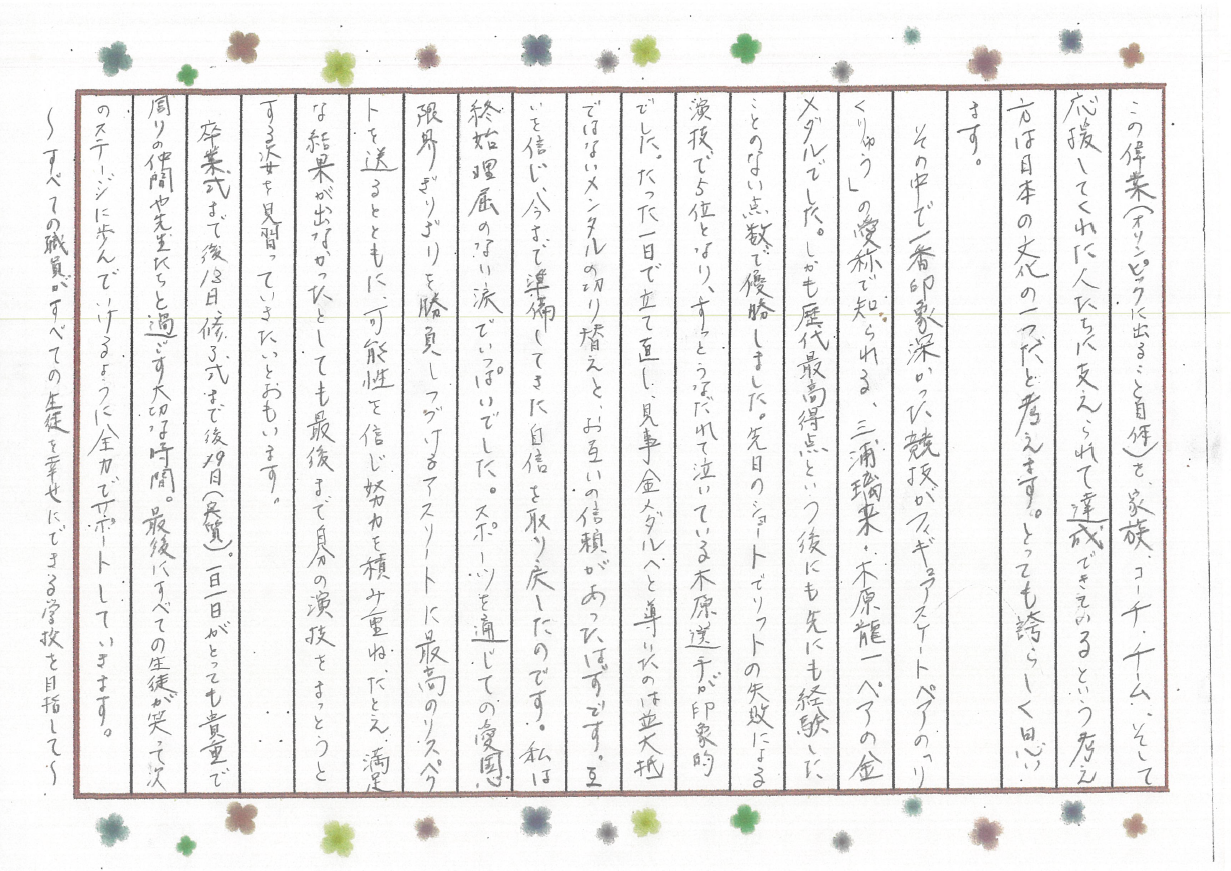 この偉業(オリンピックに出ること自体)を、家族、コーチ、チーム、そして
応援してくれた人たちに支えられて達成できているという考え
方は日本の文化の一つだと考えます。とっても誇らしく思い
ます。
その中で一番印象深かった競技がフィギュアスケートペアの「り
くりゅう」の愛称で知られる、三浦璃来・木原龍一ペアの金
メダルでした。しかも歴代最高得点という後にも先にも経験した
ことのない点数で優勝しました。先日のショートでリフトの失敗による
演技で5位となり、ずっとうなだれて泣いている木原選手が印象的
でした。たった一日で立て直し、見事金メダルへと導いたのは並大抵
ではないメンタルの切り替えと、お互いの信頼があったはずです。互
いを信じ、今まで準備してきた自信を取り戻したのです。私は
終始理屈のない涙でいっぱいでした。スポーツを通じての愛国
限界ぎりぎりを勝負しつづけるアスリートに最高のリスペク
トを送るとともに、可能性を信じ努力を積み重ね、たとえ満足
な結果が出なかったとしても最後まで自分の演技をまっとうと
する姿を見習っていきたいとおもいます。
卒業式まで後13日修了式まで後19日(実質)。一日一日がとっても貴重で
周りの仲間や先生たちと過ごす大切な時間。最後にすべての生徒が笑って次
のステージに歩んでいけるように全力でサポートしていきます。
〜すべての職員がすべての生徒を幸せにできる学校を目指して〜